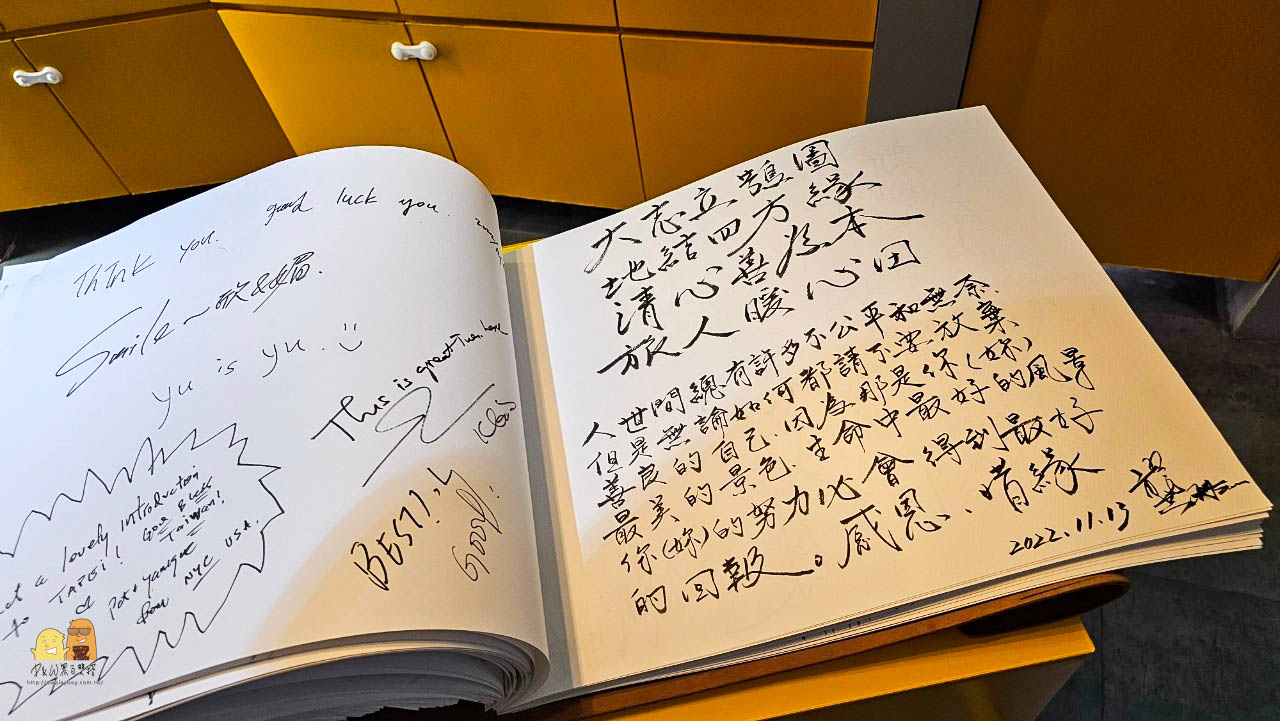 Think you. good luck you.
Smile~欣&媚.
yu is yu.
This is great
BEST!!
GOOD!
a lovely introduction
to TAIPEI! God Bless
Taiwan!
Pat + 
from NYC USA.
大志立鵠圖
地結四方緣
清心善為本
旅人暖心田
人世間總有許多不公平和無奈
但是無論如何都請不要放棄
善良的自己.因為那是你(妳)
最美的景色.生命中最好的風景
你(妳)的努力必會得到最好
的回報。感恩、惜緣
2022.11.13